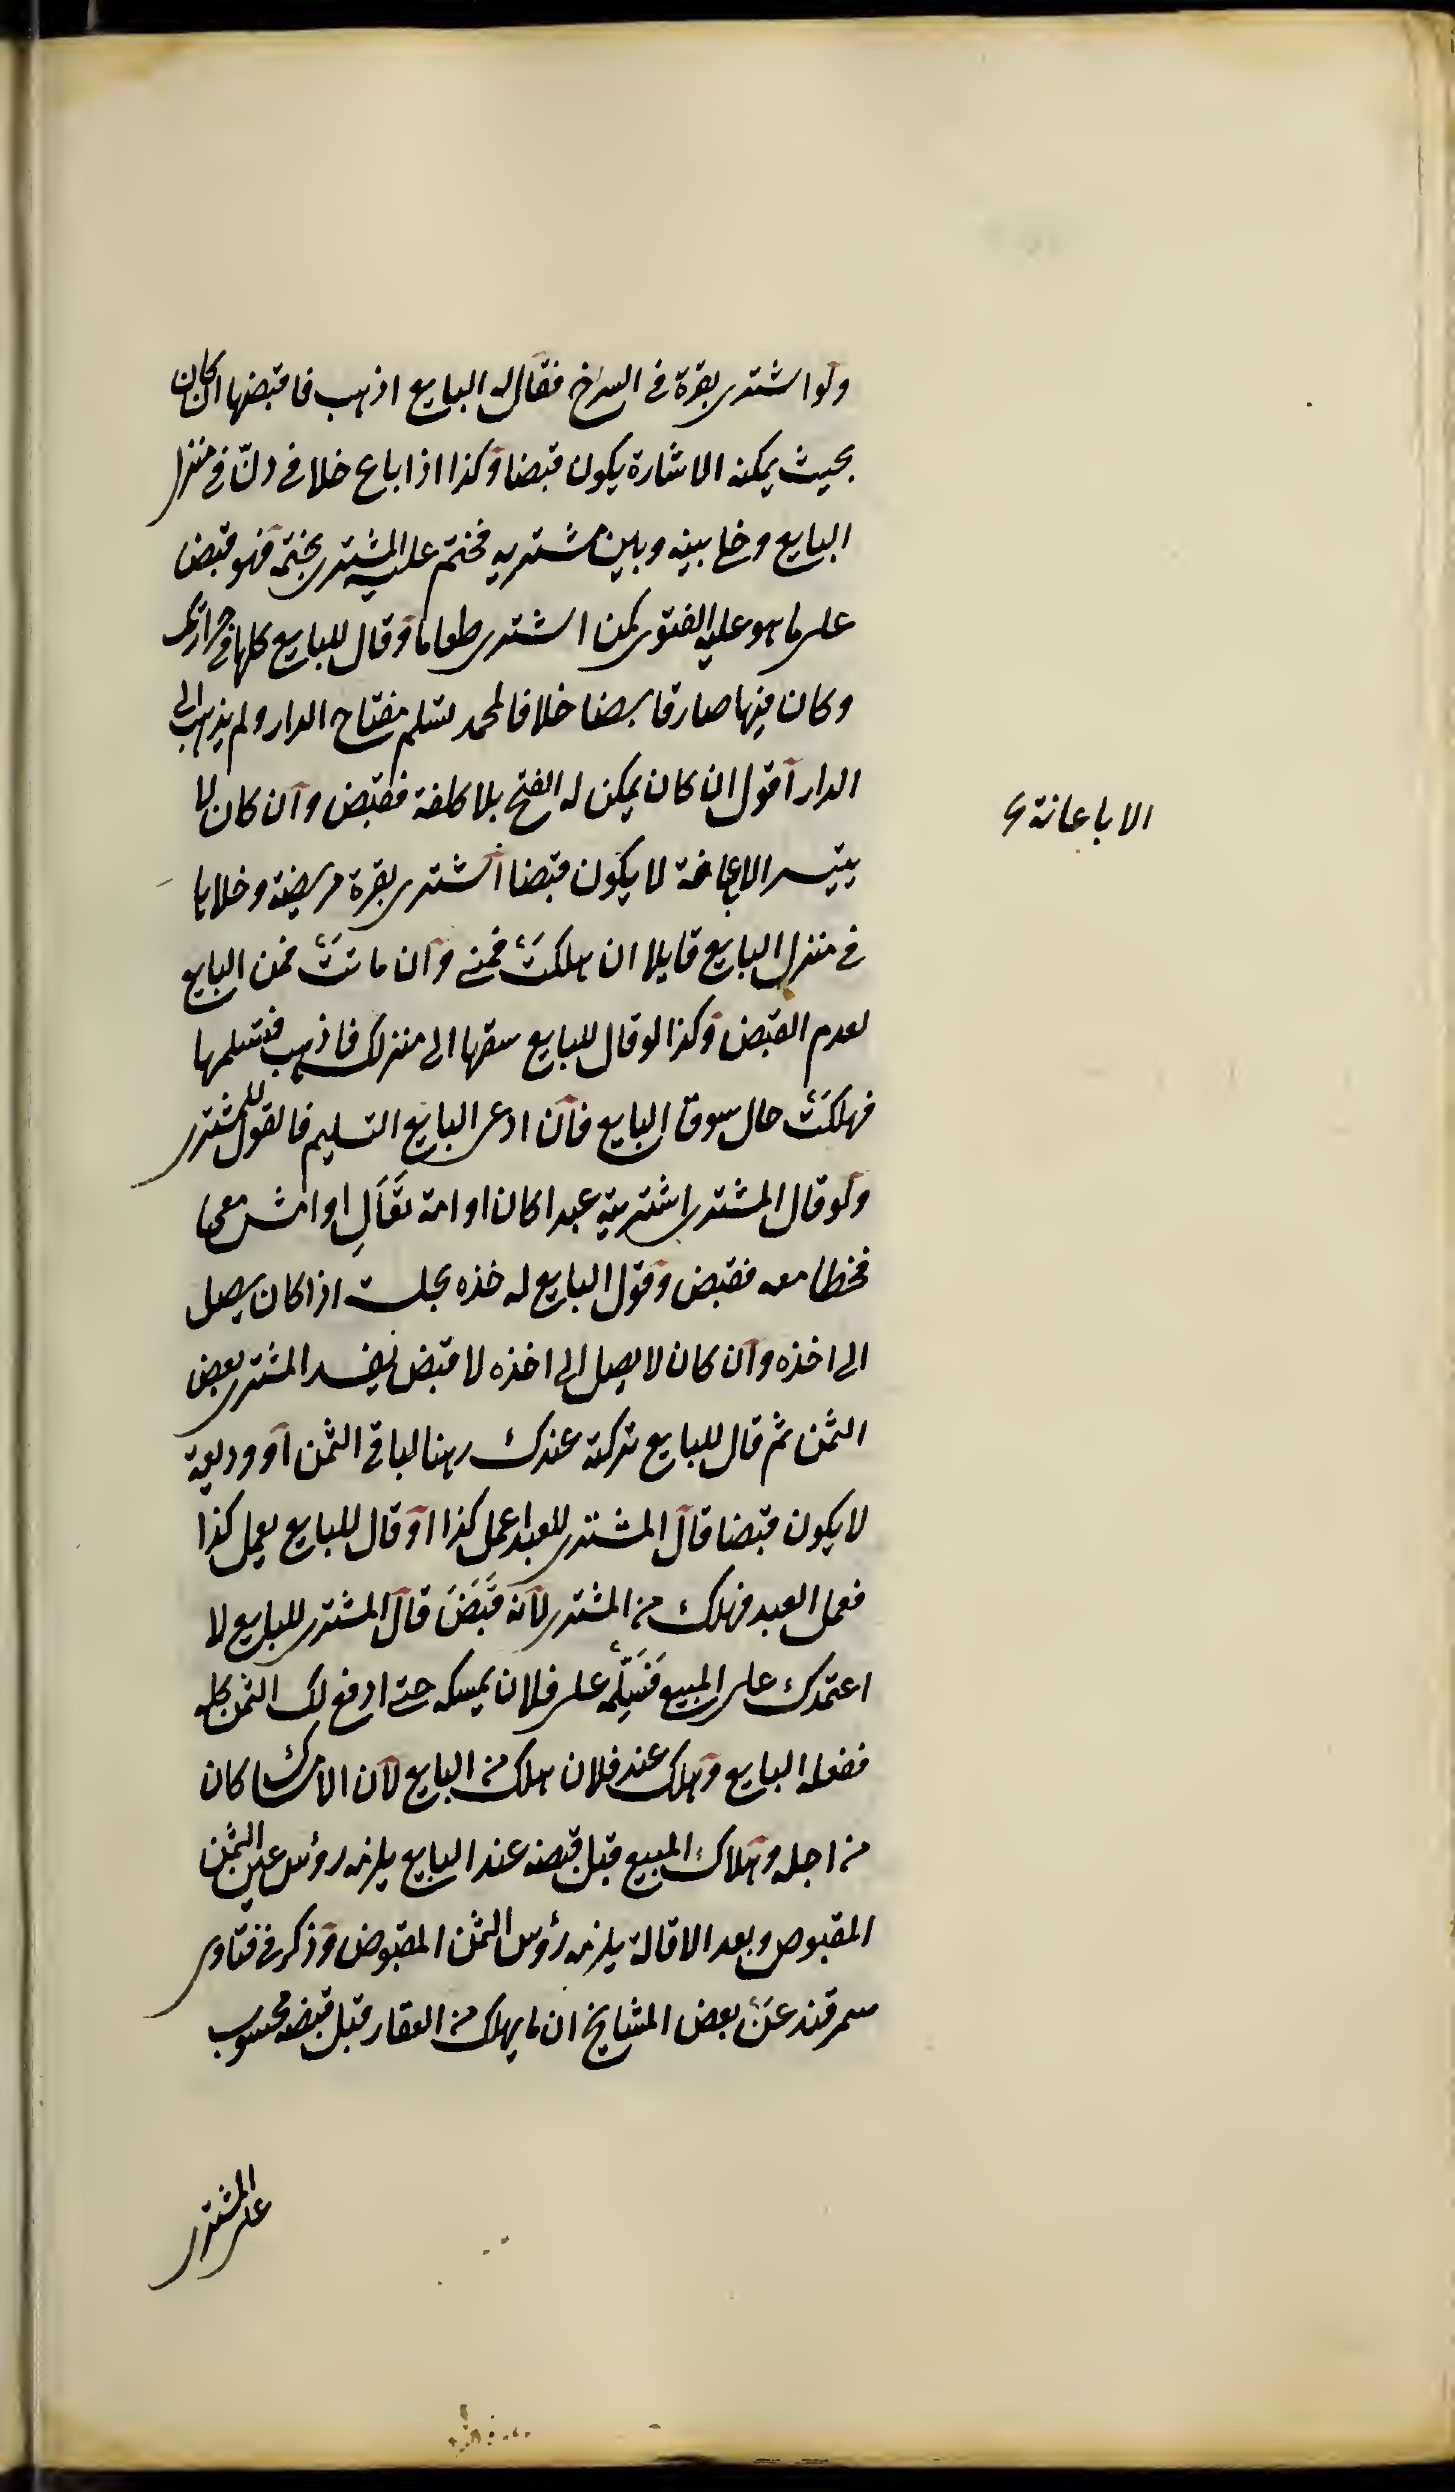 ولو اشتدى بقرة في السرخ فقال له البايع اذهب فاقبضها ان كان
بحيث يمكنه الاشارة يكون قبضا وكذا اذا باع خلا في دنّ في منزل
البايع وخلا بينه وبين مشتريه فختم عليه المشترى بختمه فهو قبض
على ما هو عليه الفتوى كمن اشترى طعاما وقال للبايع كلها في جرارتى
وكان فيها صار قابضا خلافا لمحمد تسلم مفتاح الدار ولم يذهب الى
الدار اقول ان كان يمكن له الفتح بلا كلفة فقبض وان كان لا
يتيسر الا باعانة لا يكون قبضا اشترى بقرة مريضة وخلاها
في منزل البايع قايلا ان هلكت فمني وان ماتت فمن البايع
لعدم القبض وكذا لو قال للبايع سقها الى منزلك فاذهب فتسلمها
فهلكت حال سوق البايع فان ادعى البايع التسليم فالقول للمشترى
ولو قال المشترى اشتريته عبدا كان او امة تعال او امش معى
فخطا معه فقبض وقول البايع له خذه بجلت اذا كان يصل
الى اخذه وان كان لا يصل الى اخذه لا قبض المشترى بعض
الثمن ثم قال للبايع تركته عندك رهنا لباقي الثمن او وديعة
لا يكون قبضا قال المشترى للعبد اعمل كذا او قال للبايع يعمل كذا
فعمل العبد فهلك من المشترى لانه قبض قال المشترى للبايع لا
اعتمدك على المبيع فسلمه على فلان يمسكه حتى ادفع لك الثمن كله
ففعله البايع وهلك عند فلان هلك من البايع لان الامساك كان
من اجله وهلاك المبيع قبل قبضه عند البايع يلزمه رؤس عين الثمن
المقبوض وبعد الاقالة يلزمه رؤس الثمن المقبوض وذكر في فتاوى
سمرقند عن بعض المشايخ ان ما يهلك من العقار قبل قبضه محسوب
على المشترى
الا باعانة